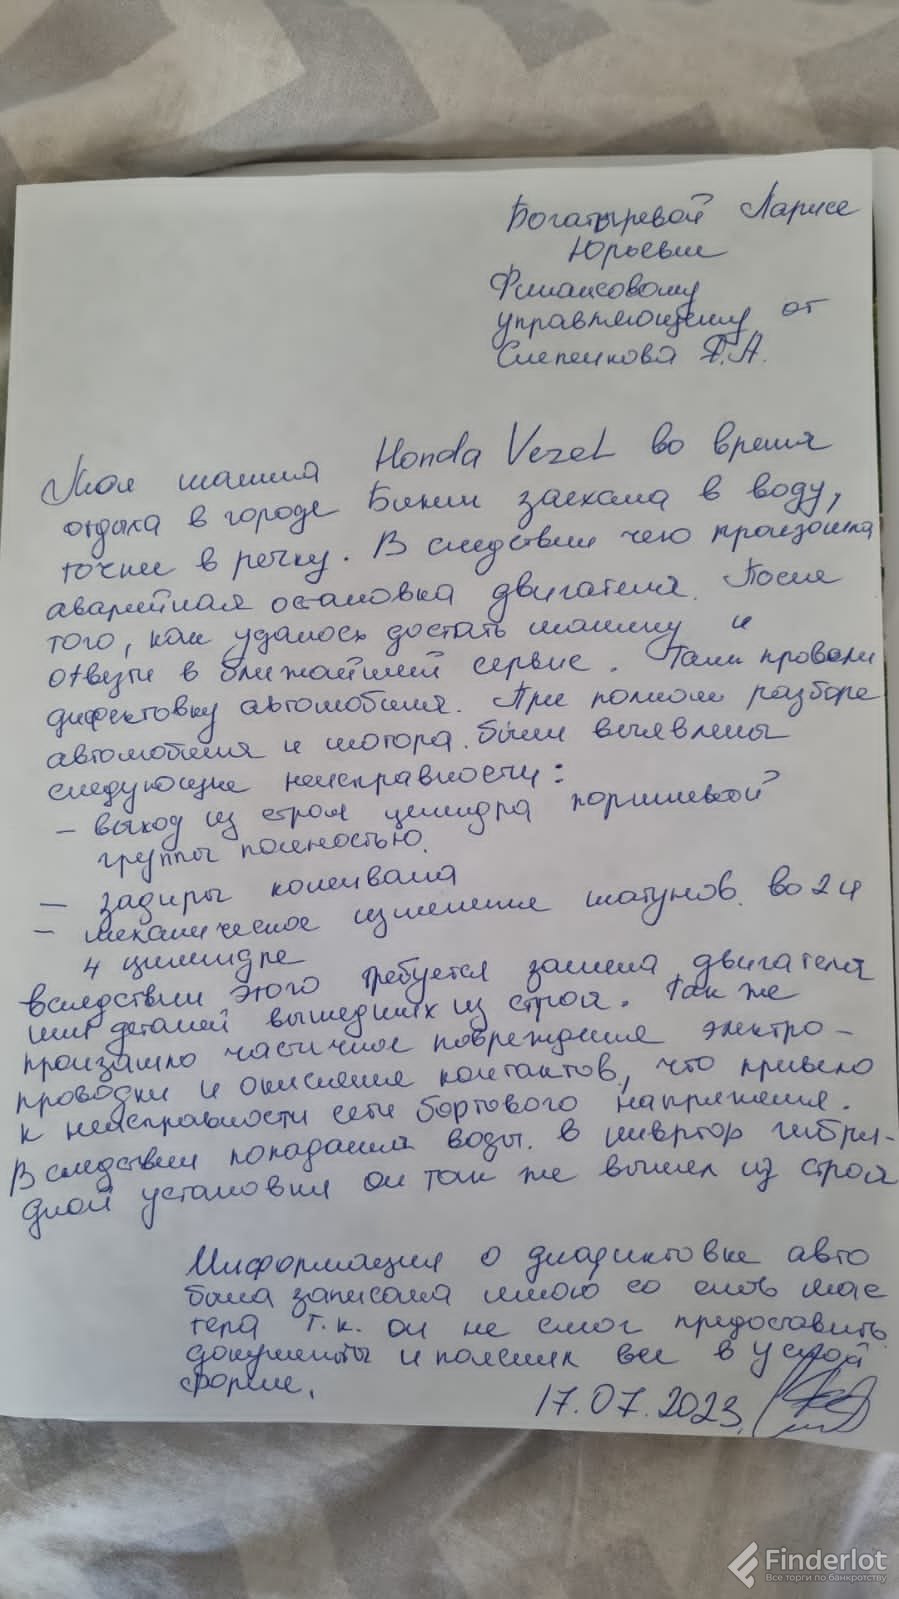 Богатыревой Ларисе
Юрьевне
Финансовому
управляющему от
Слепенкова Д.А.
Моя машина Honda Vezel во время
отдыха в городе Бикин заехала в воду,
точнее в речку. В следствии чего произошла
аварийная остановка двигателя. После
того, как удалось достать машину и
отвезти в ближайший сервис. Там провели
дифектовку автомобиля. При полном разборе
автомобиля и мотора. были выявлены
следующие неисправности:
- выход из строя цилиндра поршневой
группы полностью.
- задиры коленвала
- механическое изменение шатунов. во 2 и
4 цилиндре
вследствии этого требуется замена двигателя
или деталей вышедших из строя. Так же
произашло частичное повреждение электро-
проводки и окисление контактов, что привело
к неисправности сети бортового напряжения.
В следствии попадания воды. в инвртор гибри-
дной установки он так же вышел из строя
Информация о диафиктовке авто
была записана мною со слов мас
тера т.к. он не смог предоставить
документы и пояснил все в устной
форме.
17.07.2023.
Finderlot
Все торги по банкротству